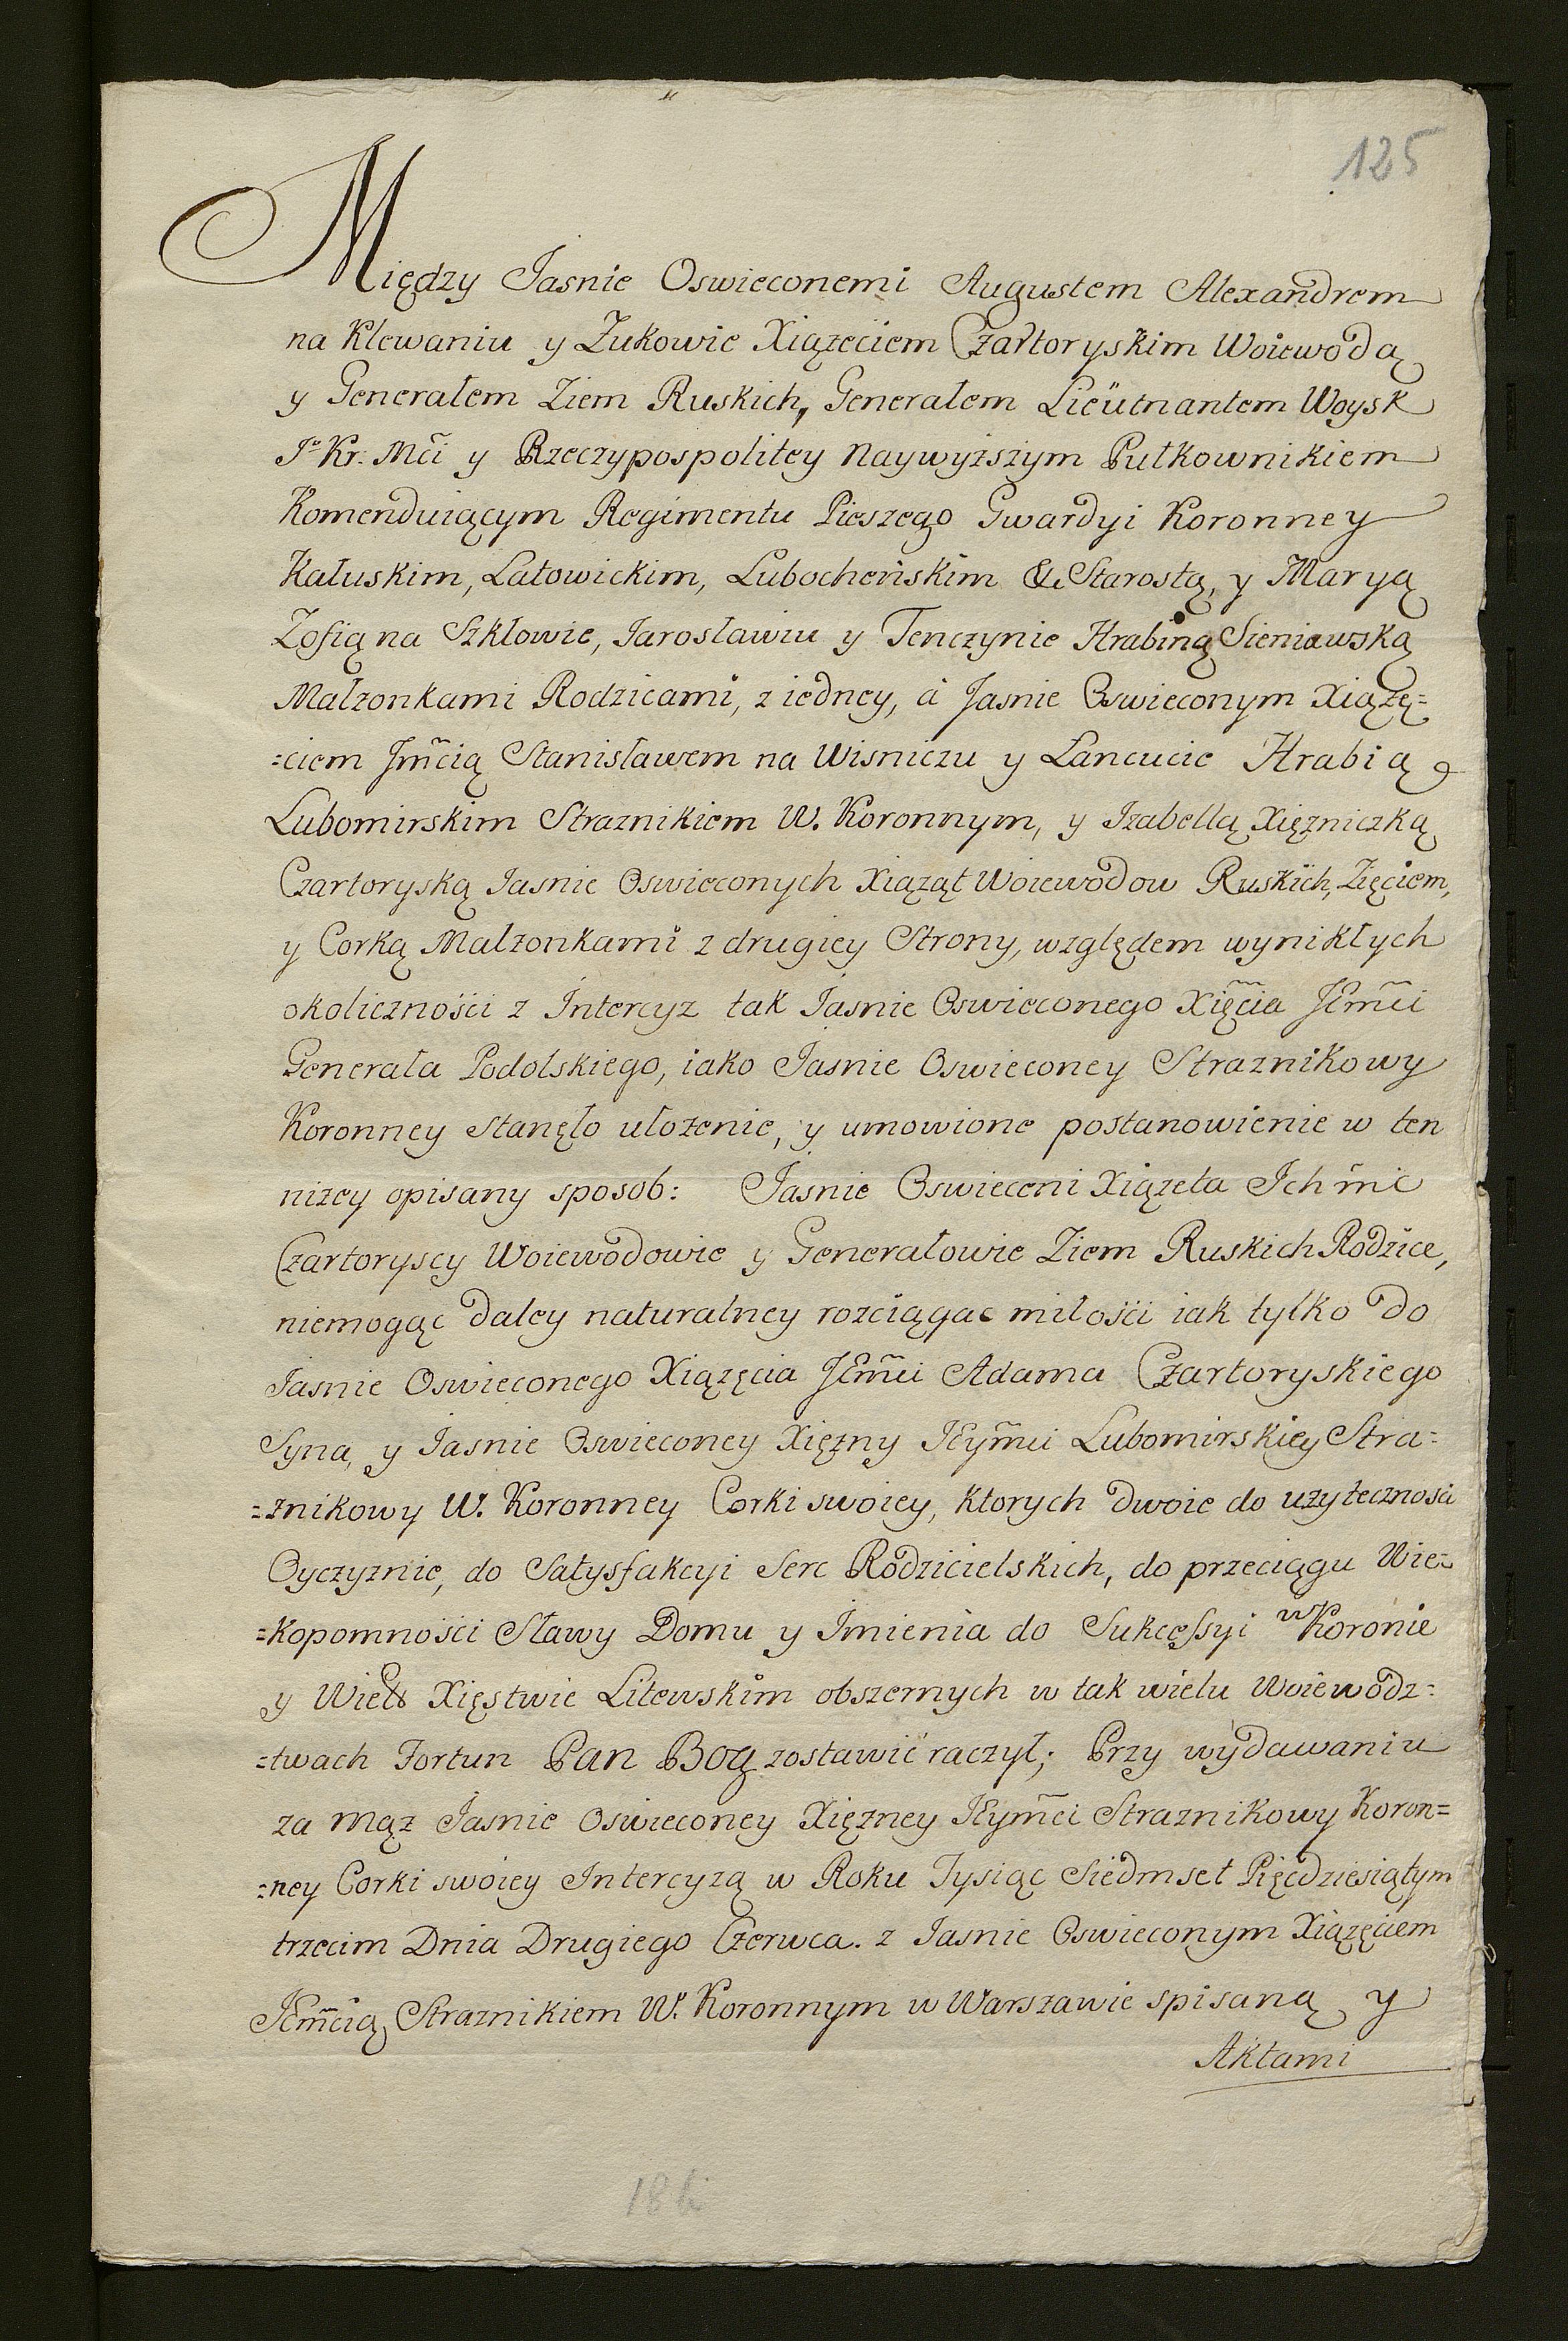 125
Między Jasnie Oswieconemi Augustem Alexandrem
na Klewaniu y Zukowie Xiązęciem Czartoryskim Woiewodą
y Generałem Ziem Ruskich, Generałem Lieütnantem Woysk
Jo Kr. Mci y Rzeczypospolitey Naywyższym Pułkownikiem
Komenduiącym Regimentu Pieszego Gwardyi Koronney
Kałuskim, Latowickim, Lubocheńskim &c Starostą, y Maryą
Zofią na Szkłowie, Jarosławiu y Tenczynie Hrabiną Sieniawską
Małzonkami Rodzicami, z iedney, á Jasnie Oswieconym Xiążę=
=ciem Jmcią Stanisławem na Wisniczu y Lancucie Hrabią
Lubomirskim Straznikiem W. Koronnym, y Izabellą Xięzniczką
Czartoryską Jasnie Oswieconych Xiąząt Woiewodow Ruskich, Zięciem,
y Corką Małzonkami z drugiey Strony, względem wynikłych
okoliczności z Intercyz tak Jasnie Oswieconego Xięcia JEmci
Generała Podolskiego, iako Jasnie Oswieconey Straznikowy
Koronney stanęło ułozenie, y umowione postanowienie w ten
nizey opisany sposob: Jasnie Oswieceni Xiązęta Ichmc
Czartoryscy Woiewodowie y Generałowie Ziem Ruskich Rodzice,
niemogąc daley naturalney rozciągac miłości iak tylko do
Jasnie Oswieconego Xiązęcia JEmci Adama Czartoryskiego
Syna, y Jasnie Oswieconey Xięzny JEymci Lubomirskiey Stra=
=znikowy W. Koronney Corki swoiey, ktorych dwoie do uzyteczności
Oyczyznie, do Satysfakcyi Serc Rodzicielskich, do przeciągu Wie=
=kopomności Sławy Domu y Imienia do Sukcessyi w Koronie
y Wielk Xięstwie Litewskim obszernych w tak wielu Woiewodz=
=twach Fortun Pan Bog zostawić raczył; Przy wydawaniu
za mąz Jasnie Oswieconey Xięzney JEymci Straznikowy Koron=
=ney Corki swoiey Intercyzą w Roku Tysiąc Siedmset Pięcdziesiątym
trzecim Dnia Drugiego Czerwca. z Jasnie Oswieconym Xiązęciem
JEmcią Straznikiem W. Koronnym w Warszawie spisaną y
Aktami